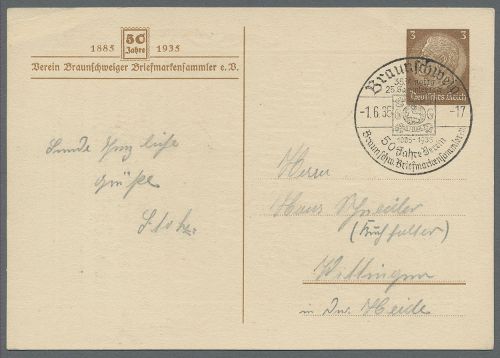 1885 50 Jahre 1935
Verein Braunschweiger Briefmarkensammler e. V.
3 3
Deutsches Reich
Braunschweig
-1.6.35 -17
1885-1935
50 Jahre Verein
Braunschw. Briefmarkensammler
Sende Ihnen liebe
Grüße
Herrn
Hans Schneider
(Buchhalter)
Wittingen
in der Heide